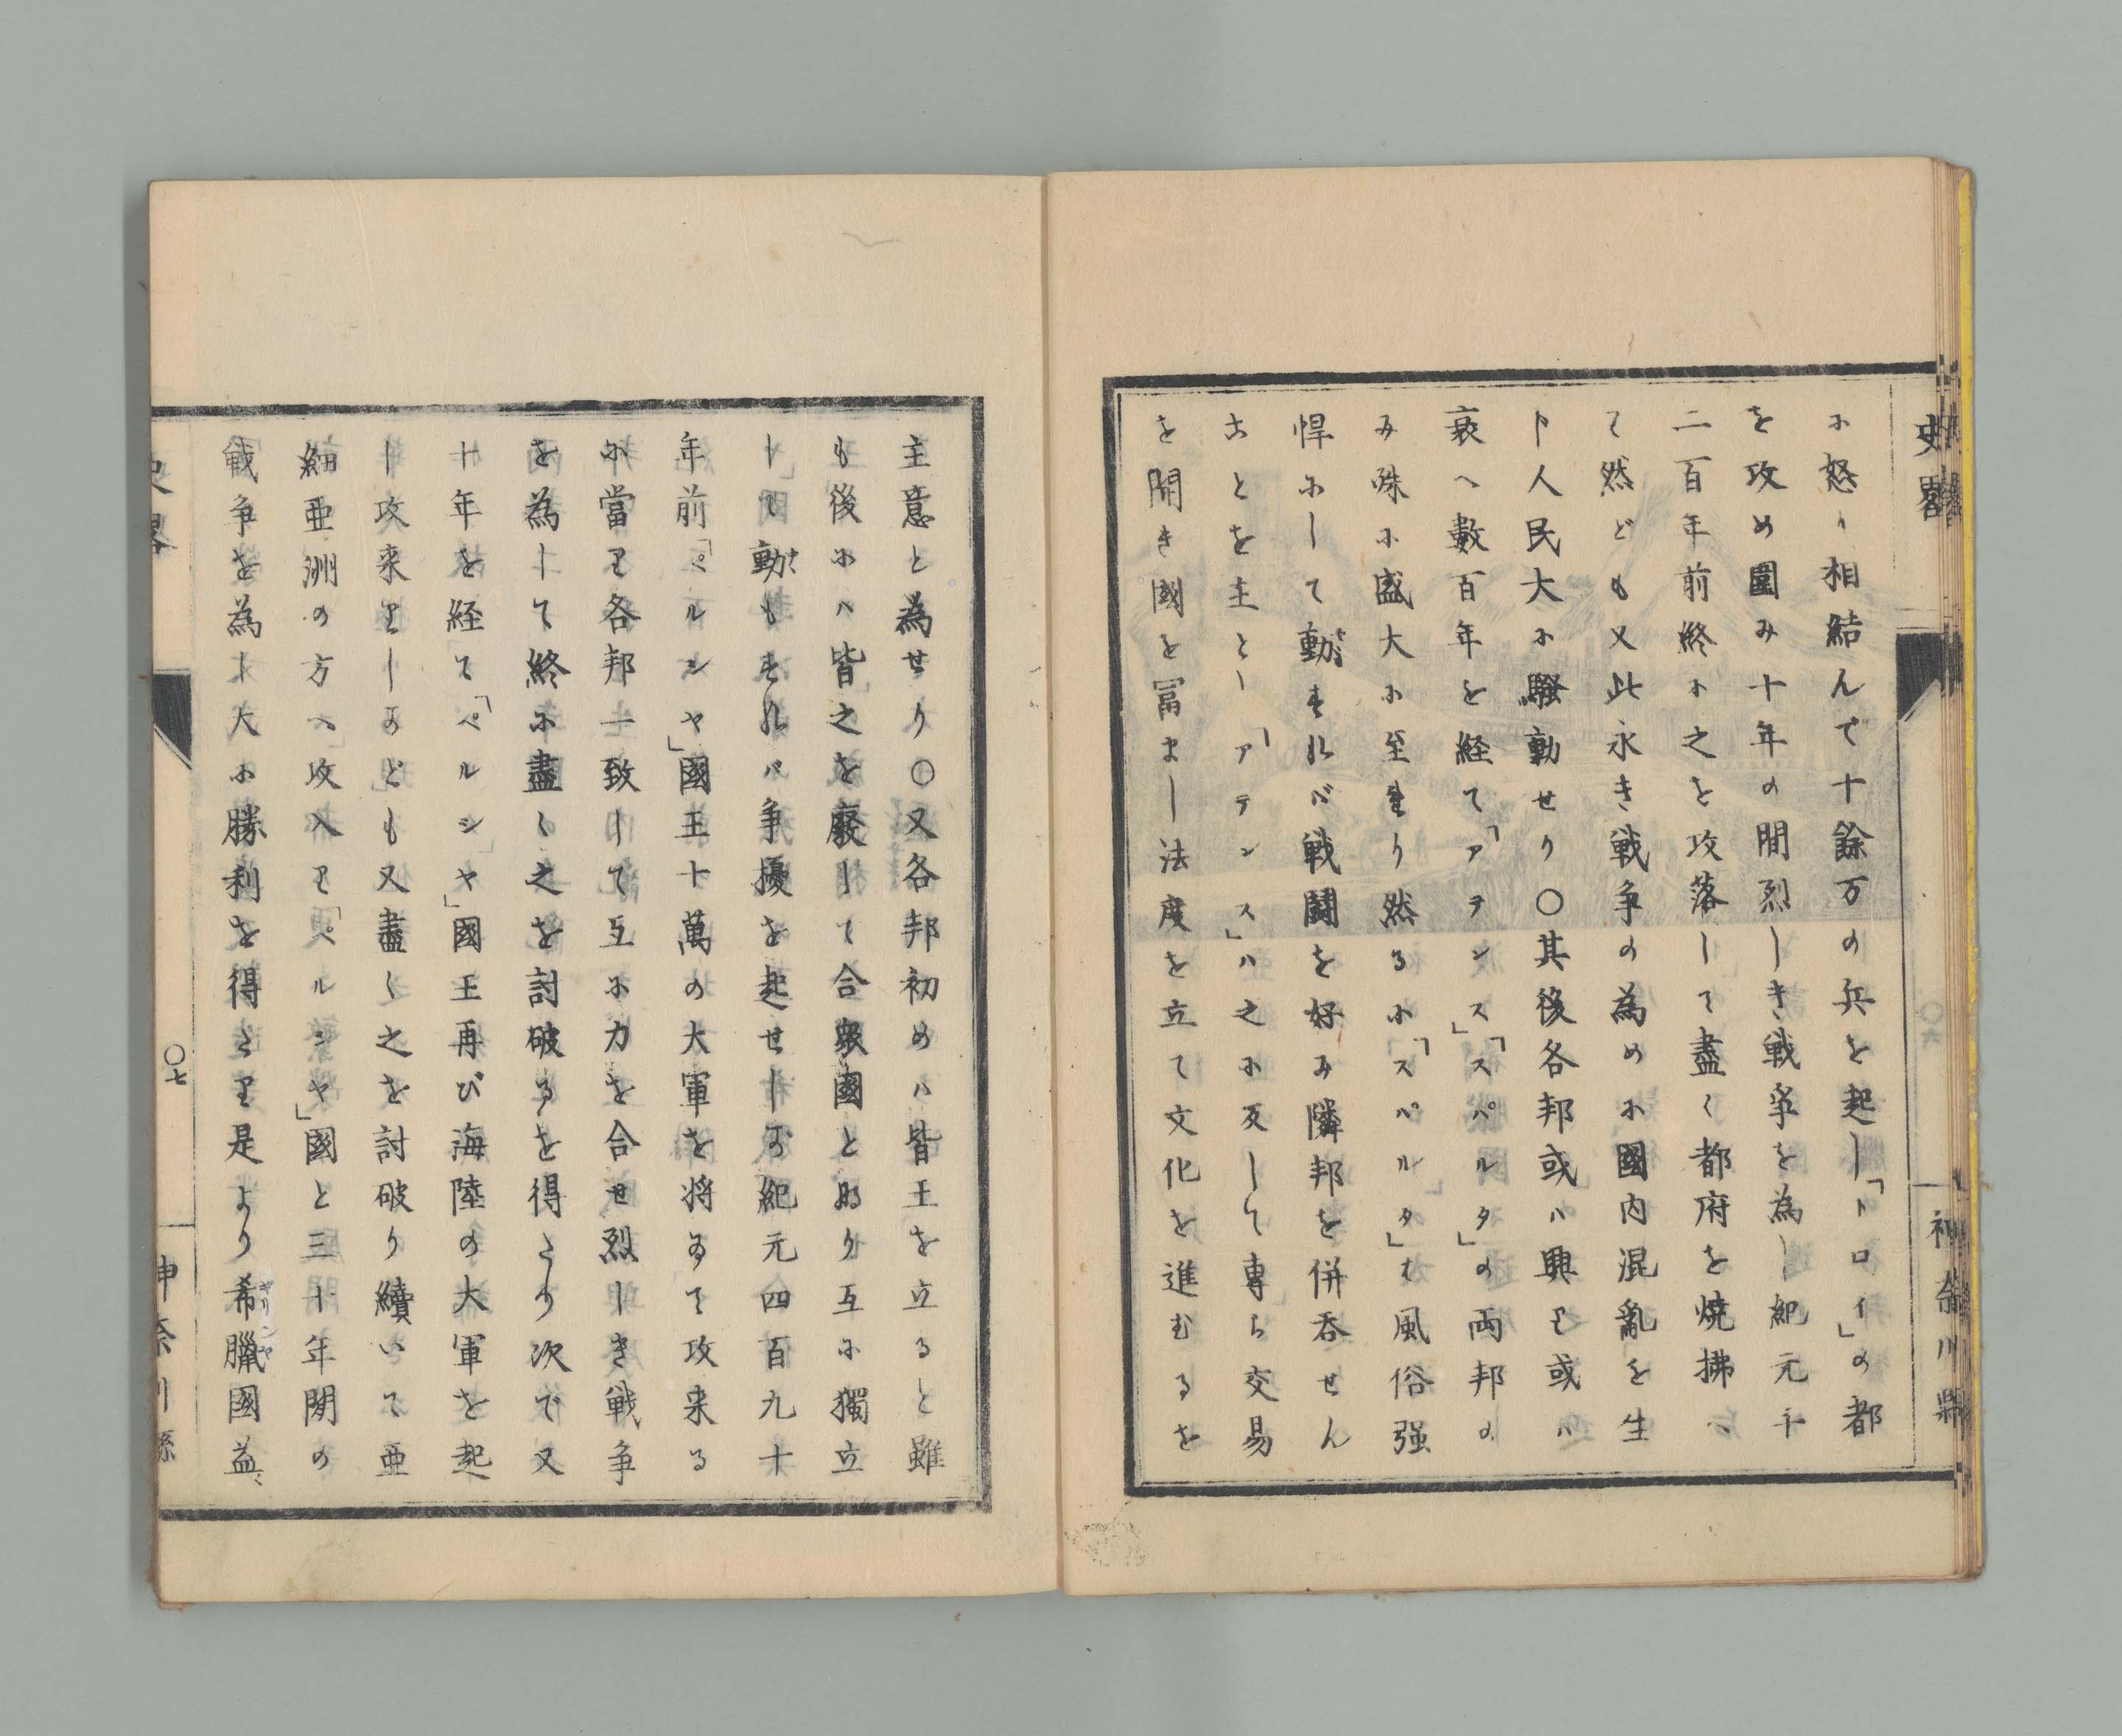 史畧
神奈川縣
に怒り相結んで十餘万の兵を起し「トロイ」の都
を攻め圍み十年の間烈しき戦爭を為し紀元千
二百年前終に之を攻落して盡く都府を焼拂へ
て然ども又此永き戦争の為めに國内混亂を生
卜人民大に騒動せり〇其後各邦或ハ興り或ハ
衰へ數百年を経て「アテンス」「スパルタ」の両邦の
み殊に盛大に至れり然るに「スパルタ」も風俗强
悍にして動もすれバ戦鬪を好み隣邦を併呑せん
ことを主とし「アテンス」ハ之に反して專ら交易
を開き國を冨まし法度を立て文化を進むるを
主意と為せり〇又各邦初めハ皆王を立ると雖
も後にハ皆之を廢して合衆國と為り互に獨立
して動もすれバ争擾を起せしが紀元四百九十
年前「ペルシヤ」國王十萬の大軍を将ゐて攻来る
に當り各邦一致して互に力を合せ烈しき戦争
を為して終に盡く之を討破るを得たり次で又
十年を経て「ペルシヤ」國王再び海陸の大軍を起
し攻来りしかども又盡く之を討破り續いて亜
細亜洲の方へ攻入り「ペルシヤ」國と三十年間の
戦争を為し大に勝利を得たり是より希臘國益〻
史畧
〇七
神奈川縣